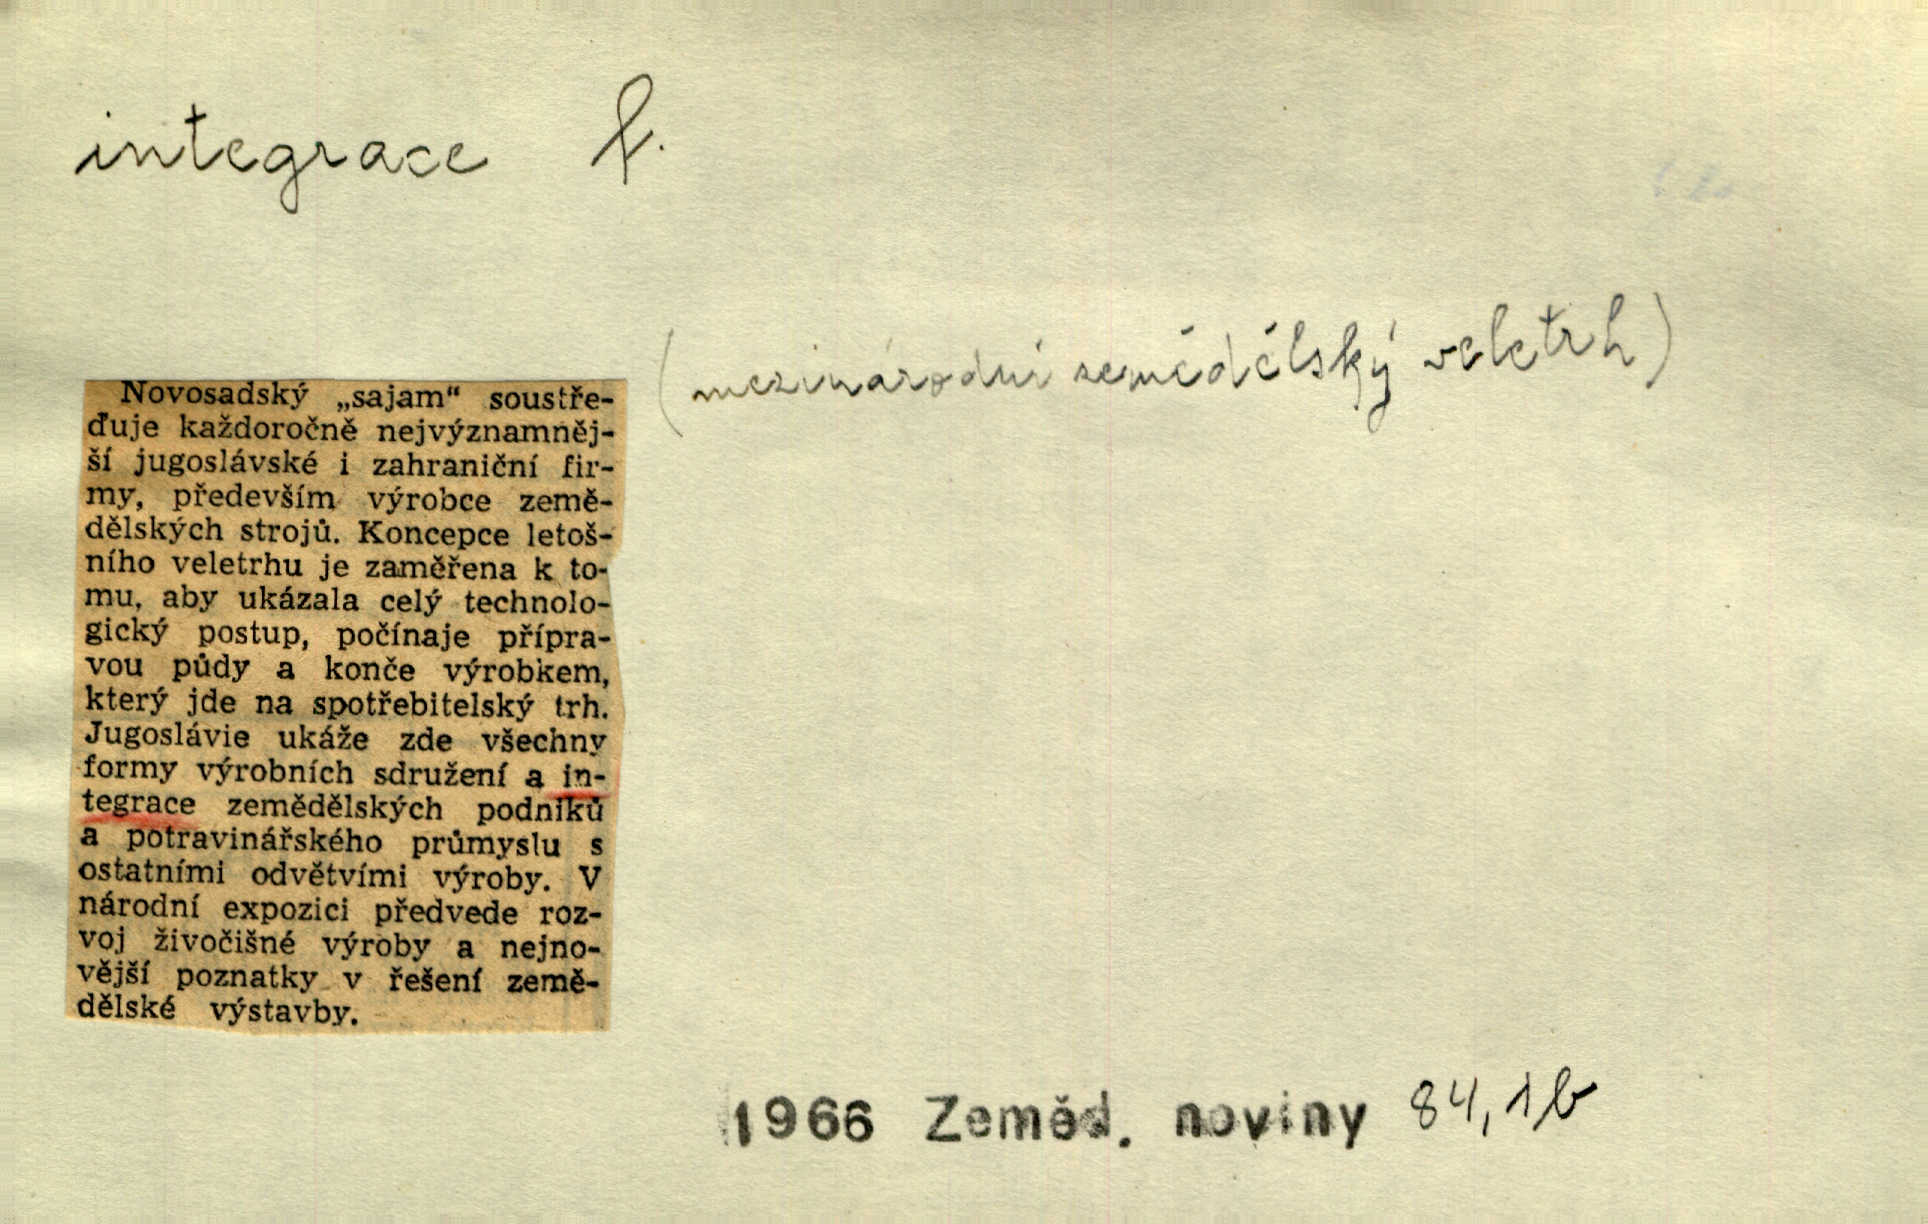 integrace f.
(mezinárodní zemědělský veletrh)
Novosadský „sajam“ soustře-
ďuje každoročně nejvýznamněj-
ší jugoslávské i zahraniční fir-
my, především výrobce země-
dělských strojů. Koncepce letoš-
ního veletrhu je zaměřena k to-
mu, aby ukázala celý technolo-
gický postup, počínaje přípra-
vou půdy a konče výrobkem,
který jde na spotřebitelský trh.
Jugoslávie ukáže zde všechny
formy výrobních sdružení a in-
tegrace zemědělských podniků
a potravinářského průmyslu s
ostatními odvětvími výroby. V
národní expozici předvede roz-
voj živočišné výroby a nejno-
vější poznatky v řešení země-
dělské výstavby.
1966 Zeměd. noviny 84, 1b